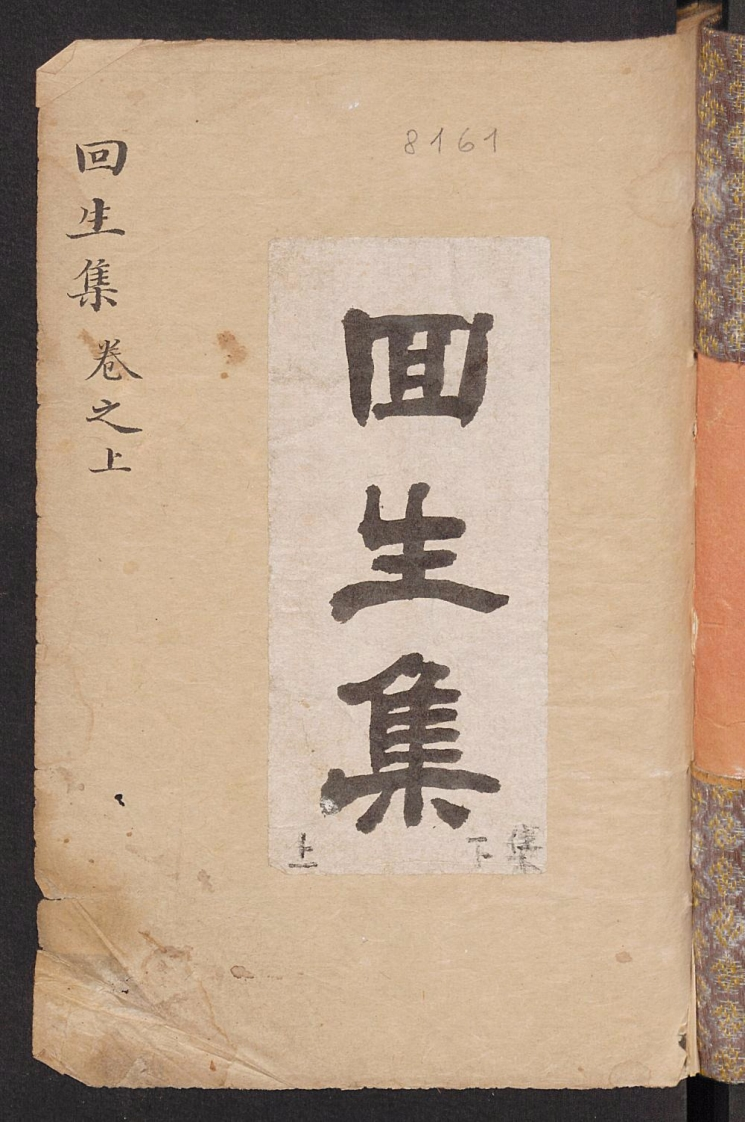 8161
回生集
集
下
上
回生集 卷之上